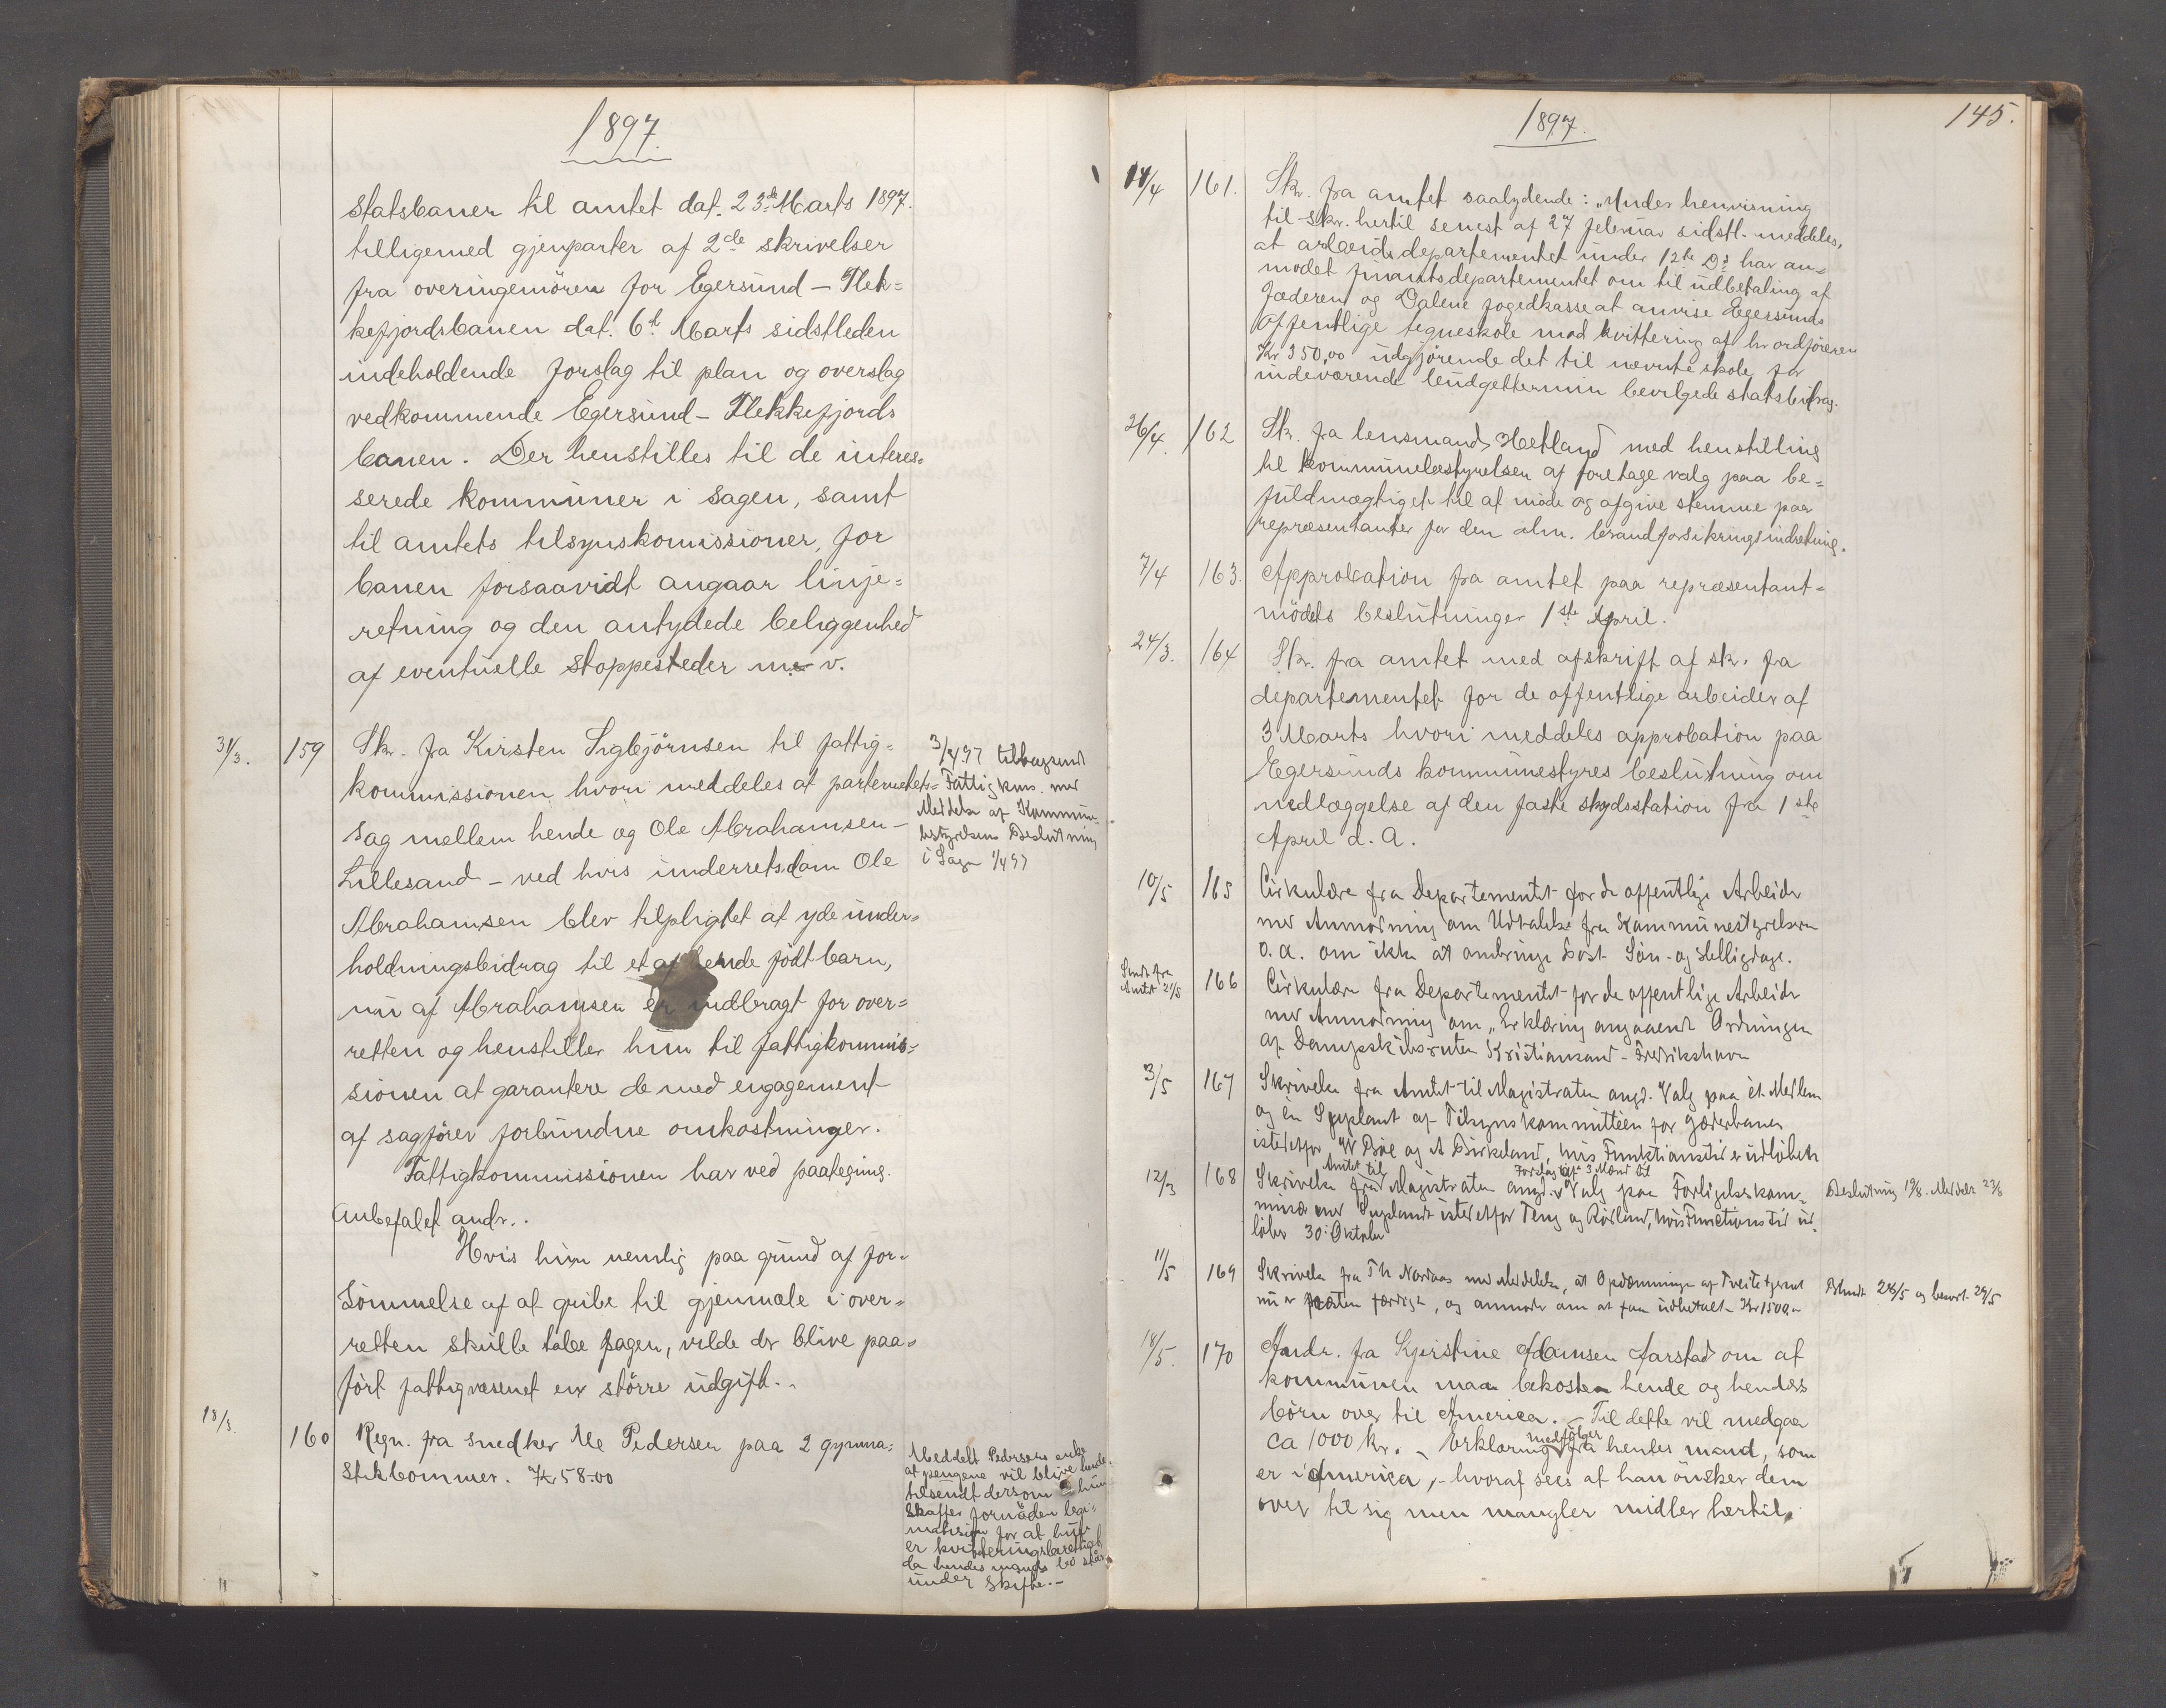 1897.
statsbaner til amtet dat. 23de Marts 1897.
tilligemed gjenparter af 2de skrivelser
fra overingeniören for Egersund – Flek=
kefjordsbanen dat. 6te Marts sidstleden
indeholdende forslag til plan og overslag
vedkommende Egersund – Flekkefjords
banen. Der henstilles til de interes=
serede kommuner i sagen, samt
til amtets tilsynskomissioner, for
banen forsaavidt angaar linje=
retning og den antydede beliggenhed
af eventuelle stoppesteder m. v.
31/3. 159 Skr. fra Kirsten Sigbjörnsen til fattig=
kommissionen hvori meddeles at paternitets=
sag mellem hende og Ole Abrahamsen –
Lillesand – ved hvis underretsdom Ole
Abrahamsen blev tilpligtet at yde under=
holdningsbidrag til et af hende födt barn,
nu af Abrahamsen er indbragt for over=
retten og henstiller hun til fattigkommis=
sionen at garantere de med engagement
af sagförer forbundne omkostninger.
Fattigkommissionen har ved paategning
anbefalet andr..
Hvis hun nemlig paa grund af for=
sömmelse af at gribe til gjenmæle i over=
retten skulle tabe sagen, vilde der blive paa=
fört fattigvæsenet en större udgift..
3/4 97 tilbagesendt
Fattigkms. med
Meddelse af Kommune=
bestyrelsens Beslutning
i Sagen 1/4 97
18/3. 160 Regn. fra snedker Ole Pedersen paa 2 gymna=
stikbommer. Kr 58.00
Meddelt Pedersens enke
at pengene vil blive hende
tilsendt dersom hun
skaffer fornöden legi=
mation for at hun
er kvitteringsberettiget
da hendes mands bo står
under skifte.–
1897.
145.
14/4 161. Skr. fra amtet saalydende: „Under henvisning
til skr. hertil senest af 27 februar sidstl. meddeles,
at arbeidsdepartementet under 12te Ds har an=
modet finantsdepartementet om til udbetaling af
Jæderen og Dalene fogedkasse at anvise Egersunds
offentlige tegneskole mod kvittering af hr ordföreren
Kr 350,00 udgjörende det til nævnte skole for
indeværende budgettermin bevilgede statsbidrag.
26/4. 162 Sk. fra lensmand Hetland med henstilling
til kommunebestyrelsen af foretage valg paa be=
fuldmægtiget til at möde og afgive stemme paa
repræsentanter for den alm. brandforsikringsindretning.
7/4 163. Approbation fra amtet paa repræsentant=
mödets beslutninger 1ste April.
24/3. 164 Skr. fra amtet med afskrift af sk. fra
departementet for de offentlige arbeider af
3 Marts hvori meddeles approbation paa
Egersunds kommunestyres beslutning om
nedlæggelse af den faste skydsstation fra 1ste
April d. A.
10/5 165 Cirkulære fra Departementet for de offentlige Arbeider
med Anmodning om Udtalelse fra Kommunestyrelsen
o. a. om ikke at ombringe Post Søn- og Helligdage.
Sendt fra
Amtet 21/5 166 Cirkulære fra Departementet for de offentlige Arbeider
med Anmodning om „Erklæring angaaende Ordningen
af Dampskibsruten Kristiansand – Fredrikshavn
3/5 167 Skrivelse fra Amtet til Magistraten angd. Valg paa et Medlem
og en Suppleant af Tilsynskommitteen for Jæderbanen
istedetfor W Böe og A Birkeland, hvis Funktionstid er udlöbet
Amtet til Forslag af 3 Mænd til
12/3 168 Skrivelse fra Magistraten angd. Valg paa Forligelseskom=
misær med Suppleant istedetfor Teng og Rödland, hvis Functionstid ud=
löber 30 Oktober
Beslutning 19/8. Meddelt 23/8
11/5 169 Skrivelse fra Th Nordaas med Meddelelse, at Opdæmningen af Tveitetjernet
nu er næsten færdigt, og anmoder om at faa udbetalt Kr 1500.–
Blendt 24/5 og besvart 29/5
18/5. 170 Andr. fra Kjerstine Adamsen Aarstad om at
kommunen maa bekoste hende og hendes
börn over til America. – Til dette vil medgaa
ca 1000 kr. – Erklæring medfölger fra hendes mand, som
er i America, – hvoraf sees at han önsker dem
over til sig men mangler midler hertil.